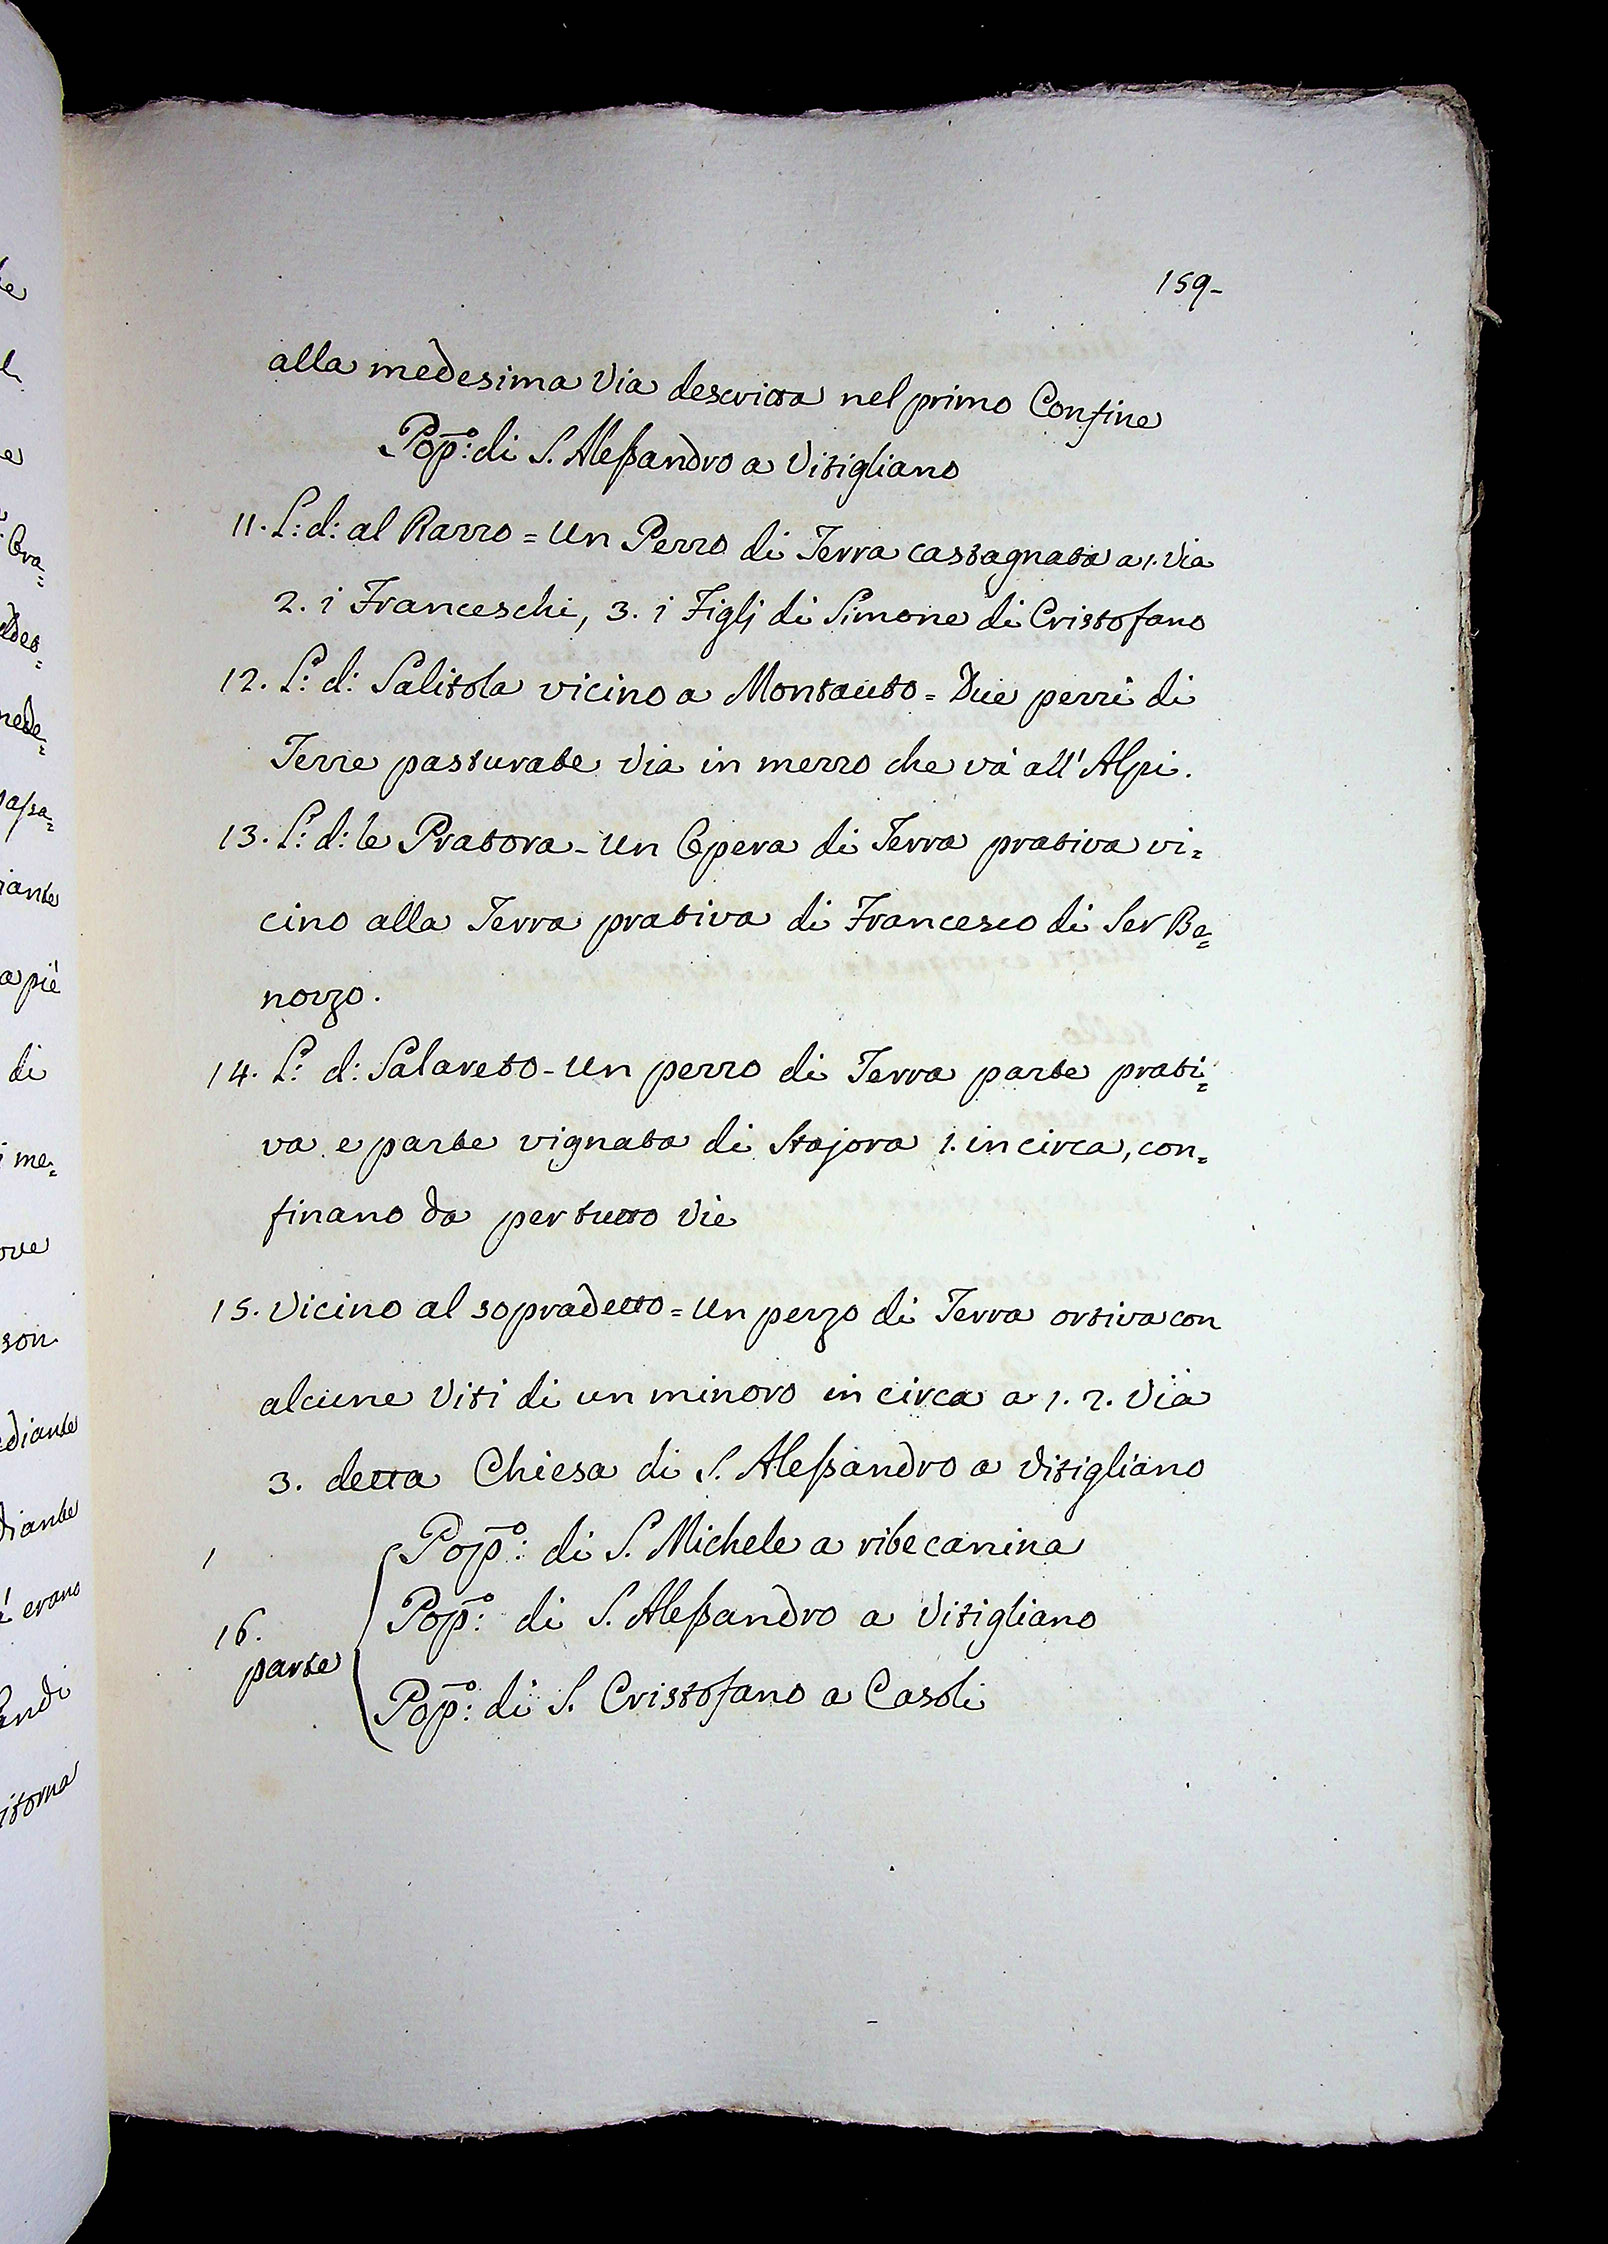 159-
alla medesima Via descritta nel primo Confine
Pop̄.º: di S. Alessandro a Vitigliano
11. L: d: al Razzo = Un Pezzo di Terra castagnata a 1. Via
2. i Franceschi, 3. i Figlj di Simone di Cristofano
12. L: d: Salitola vicino a Montauto = Due pezzi di
Terre pasturate Via in mezzo che và all'Alpi.
13. L: d: le Pratora - Un Opera di Terra prativa vi=
cino alla Terra prativa di Francesco di Ser Be=
nozzo.
14. L: d: Salareto - Un pezzo di Terra parte prati=
va e parte vignata di Stajora 1. in circa, con=
finano da per tutto Vie
15. Vicino al sopradetto = Un pezzo di Terra ortiva con
alcune Viti di un minoro in circa a 1. 2. Via
3. detta Chiesa di S. Alessandro a Vitigliano
Pop̄.º: di S. Michele a ribecanina
Pop̄.º: di S. Alessandro a Vitigliano
16.
parte
Pop̄.º: di S. Cristofano a Casoli